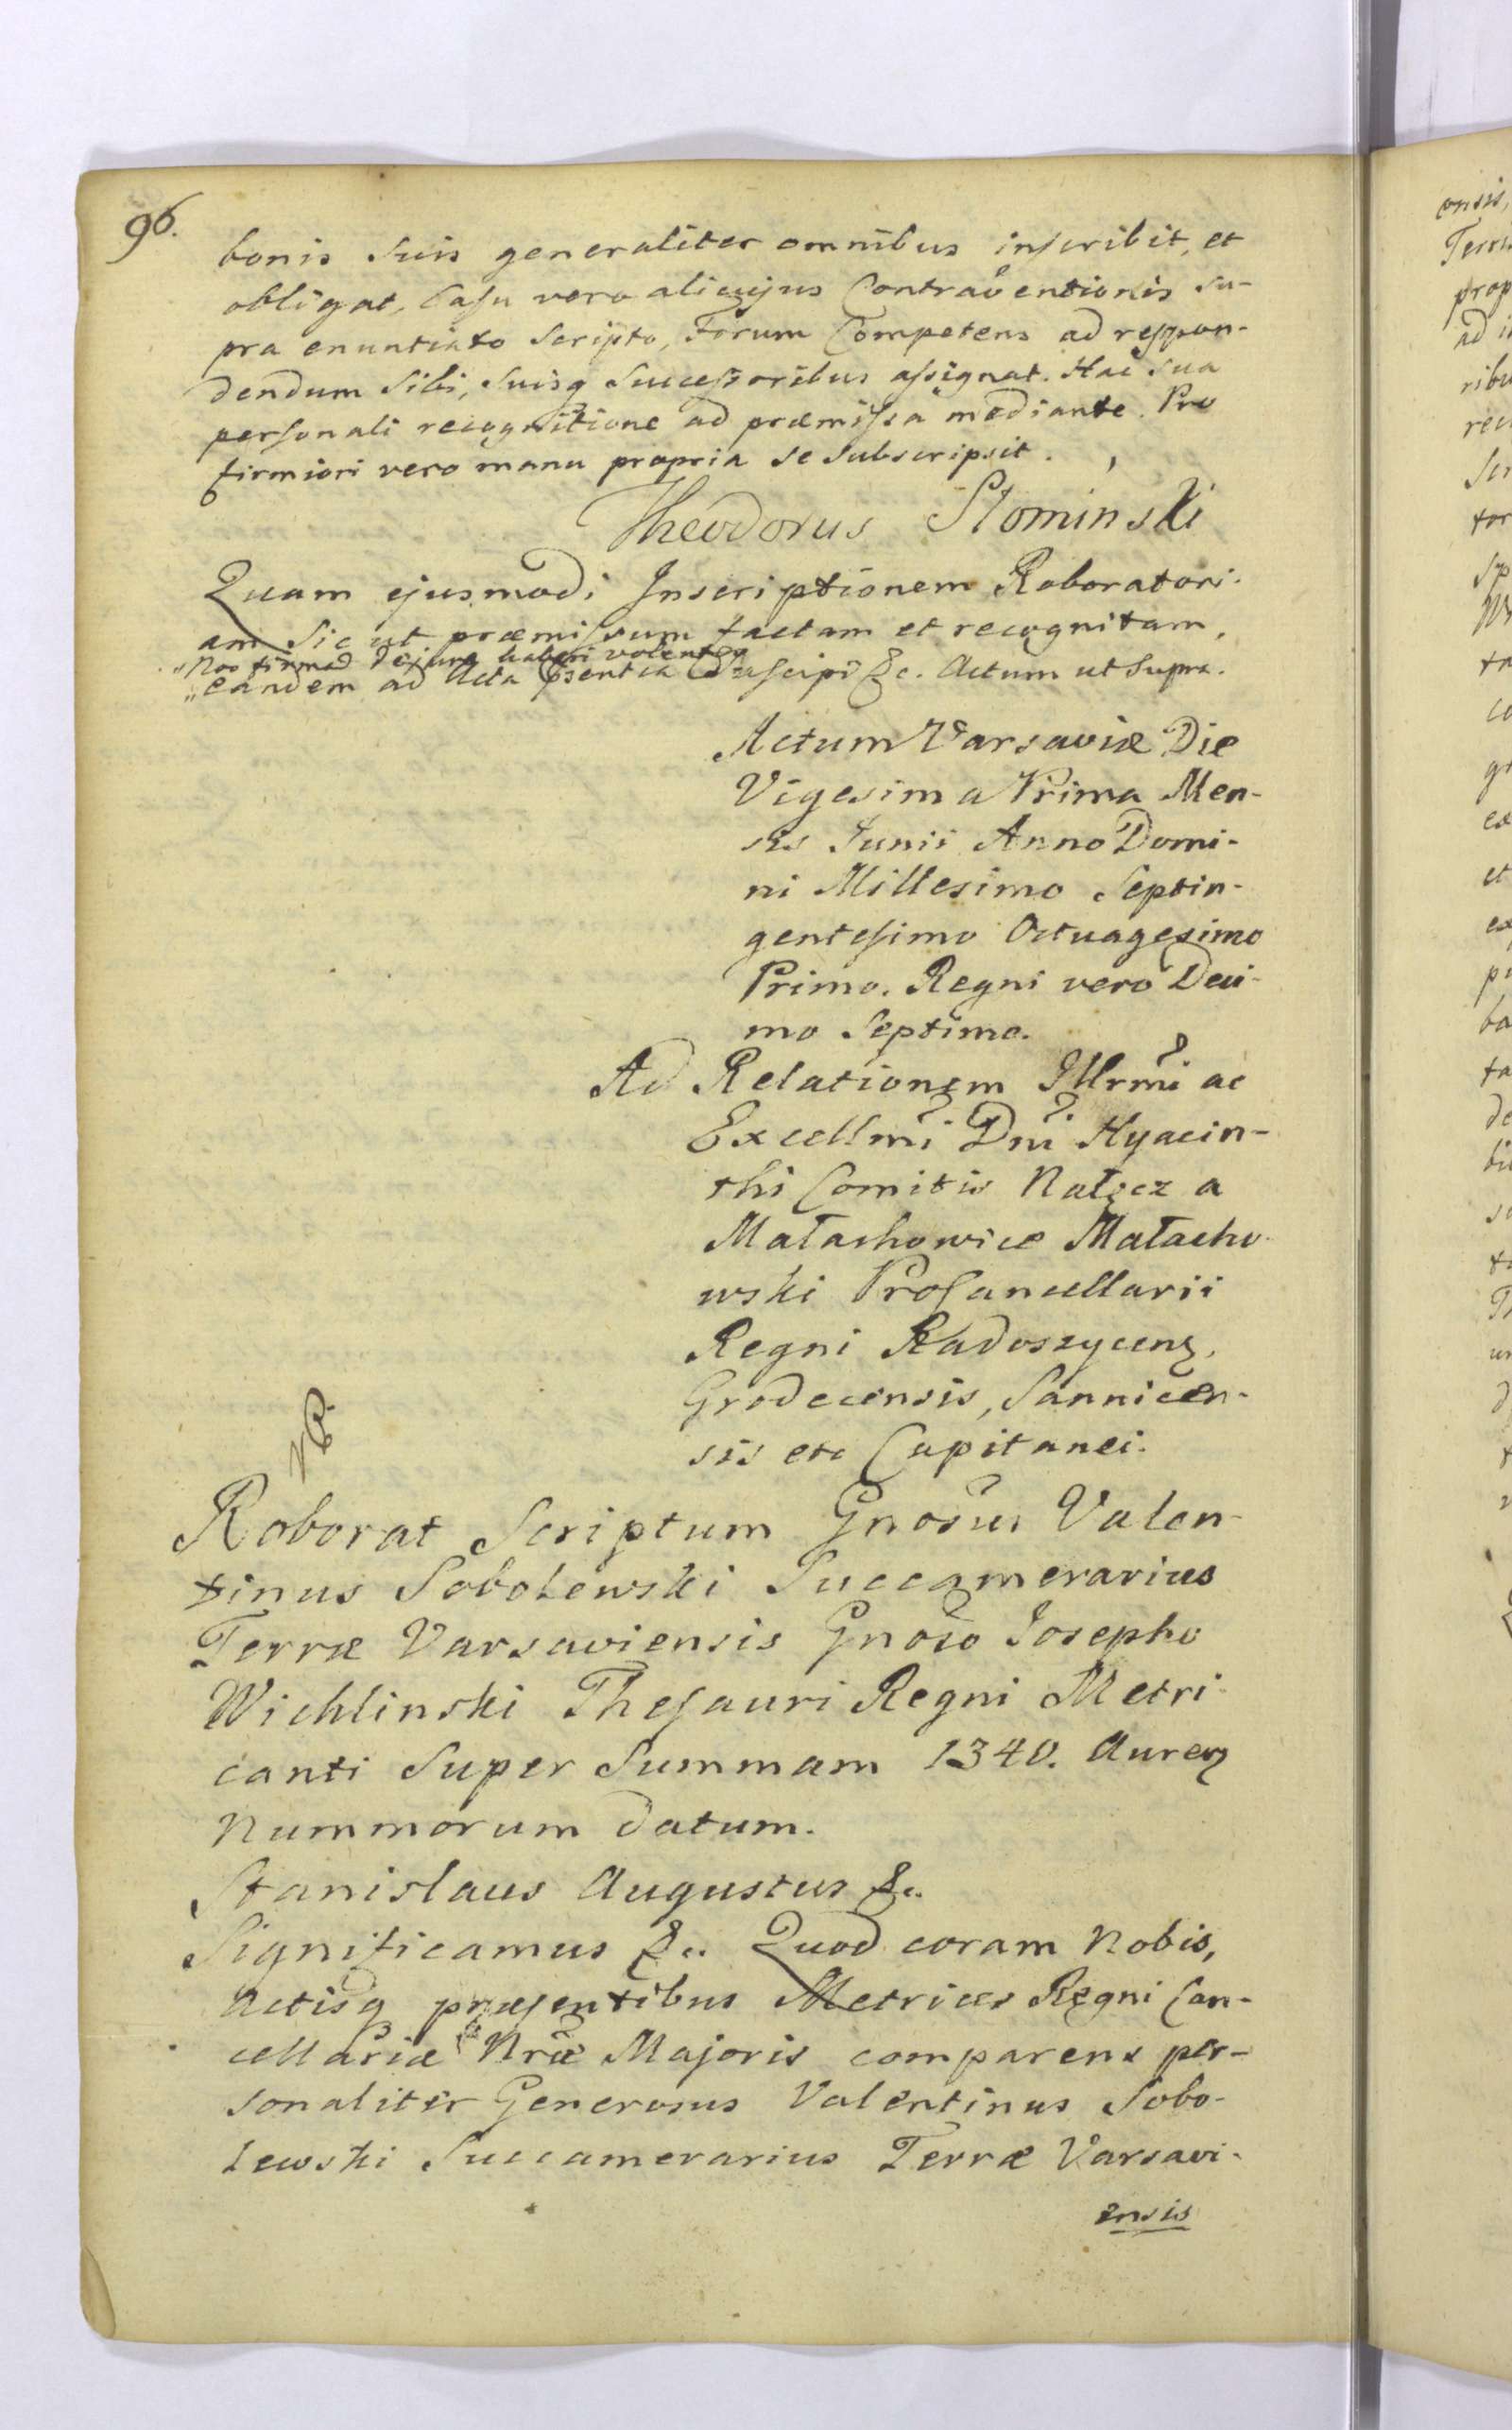 96.
bonis suis generaliter omnibus inscribit, et
obligat, Casu vero alicujus Contraventionis su-
pra enuntiato Scripto, Forum Competens ad respon-
dendum Sibi, Suisq Successoribus assignat. Hac sua
personali recognitione ad præmissa mediante. Pro
firmiori vero manu propria se subscripsit.
Theodorus Slominski
Quam ejusmodi Inscriptionem Roboratori-
am Sic ut præmissum factam et recognitam,
"Nos firmad Dejure haberi volentes
"eandem ad Acta psentia Suscipi &c. Actum ut Supra.
Actum Varsaviæ Die
Vigesima Prima Men-
sis Junii Anno Domi-
ni Millesimo Septin-
gentesimo Octuagesimo
Primo. Regni vero Deci-
mo Septimo.
Ad Relationem Illrmi ac
Excellmi Dni Hyacin-
thi Comitis Nałęcz a
Małachowice Małacho-
wski ProCancellarii
Regni Radoszycens,
Grodecensis, Sannicen-
sis etc Capitanei.
Roborat Scriptum Gnosus Valen-
tinus Sobolewski Succamerarius
Terræ Varsaviensis Gnoso Josepho
Wichlinski Thesauri Regni Metri-
canti Super Summam 1340. Aureor
Nummorum datum.
Stanislaus Augustus &c.
Significamus &c. Quod coram Nobis,
Actisq præsentibus Metrices Regni Can-
cellariæ Nræ Majoris comparens per-
sonaliter Generosus Valentinus Sobo-
lewski Succamerarius Terræ Varsavi-
ensis